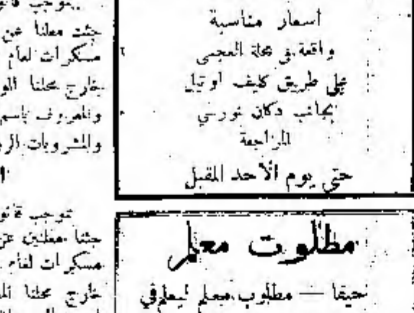 أسعار مناسبة
واقعة في محلة العجمي
على طريق كليف اوتيل
بجانب دكان نورسي
المراجعة
حتى يوم الأحد المقبل
مطلوب معلم
حيفا — مطلوب معلم ليعلم في
بموجب
جئنا معلناً عن
مسكرات لعام
خارج محلنا
والمعروف باسم
والمشروبات
بموجب
جئنا معلنين عن
مسكرات لعام
خارج محلنا